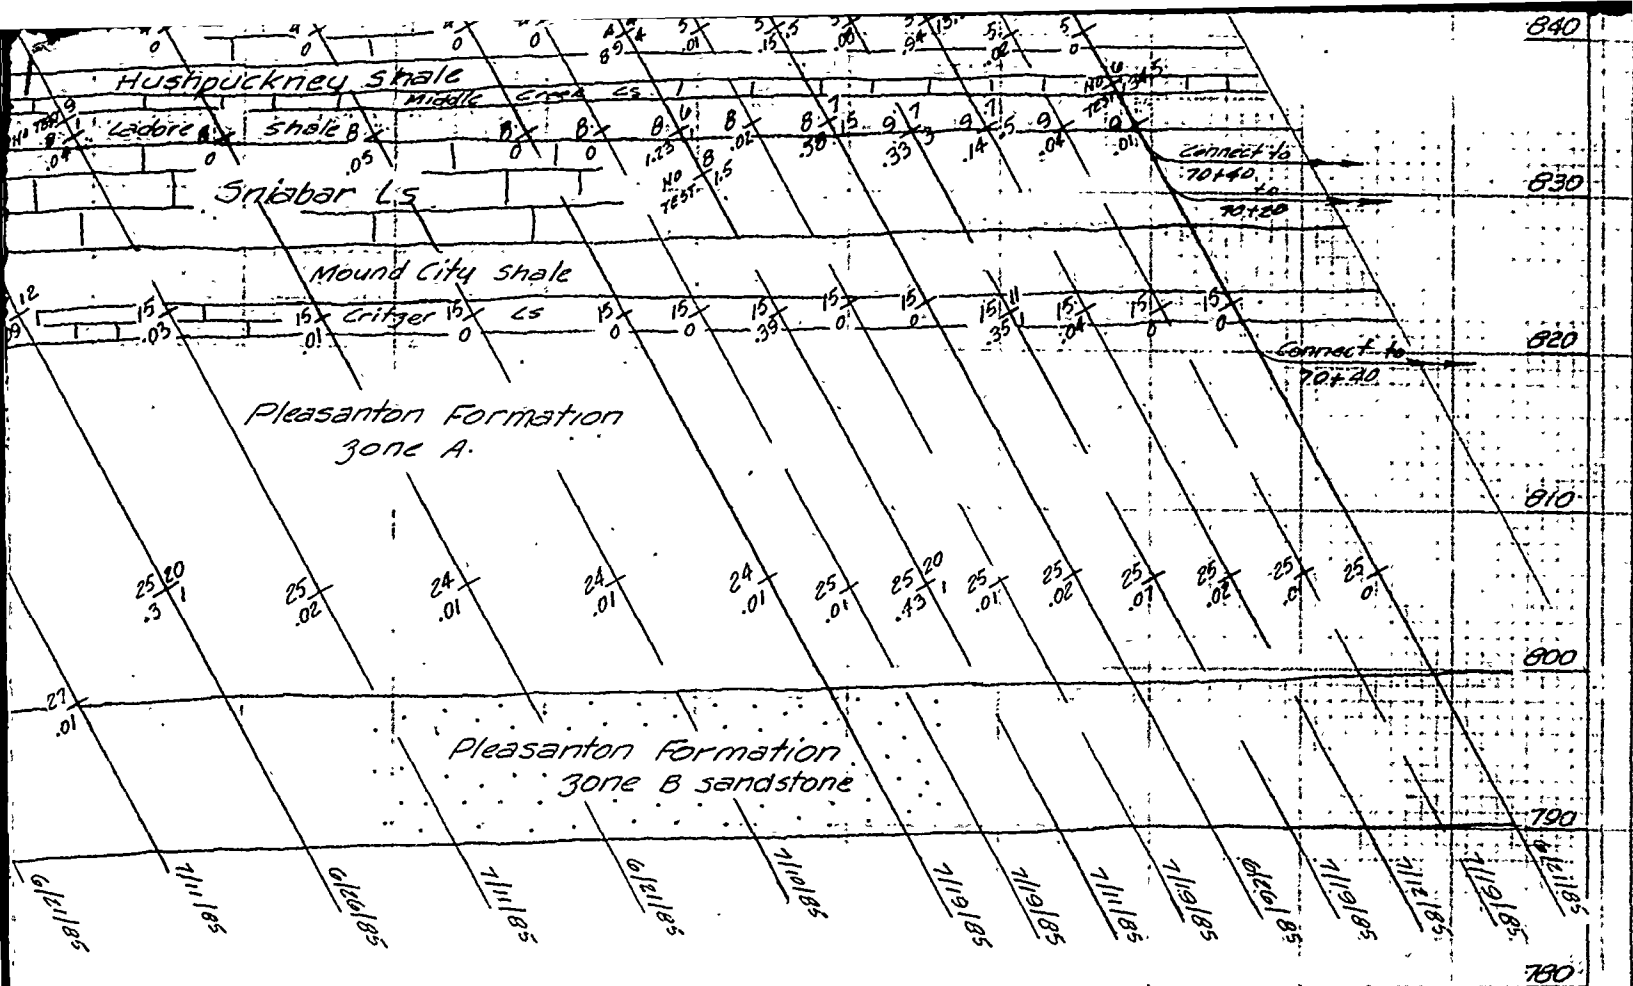 840
0
0
0
0
89
.01
.15
.5
.06
.94
.02
0
Hushpuckney Shale
Middle Creek Ls
NO TEST
NO TEST
Ladore Shale
8
0
8
.05
8
0
8
0
8
6
1.23
1
8
.02
8
7
.38
1.5
9
7
.33
3
9
7
.14
.5
9
.04
9
.01
Connect to
70+40
to
70+20
830
Sniabar Ls
NO TEST
8
1.5
Mound City Shale
12
1
.09
15
.03
15
.01
Critzer Ls
15
0
15
0
15
0
15
.39
15
0
15
0
15
11
.35
1
15
.04
15
0
15
0
820
Connect to
70+40
Pleasanton Formation
Zone A.
810
25
20
.3
1
25
.02
24
.01
24
.01
24
.01
25
.01
25
20
.43
1
25
.01
25
.02
25
.07
25
.02
25
.0
25
0
800
27
.01
Pleasanton Formation
Zone B sandstone
790
6/21/85
7/11/85
6/26/85
7/11/85
6/21/85
7/10/85
7/19/85
7/19/85
7/11/85
7/19/85
6/26/85
7/19/85
7/12/85
7/19/85
6/21/85
780